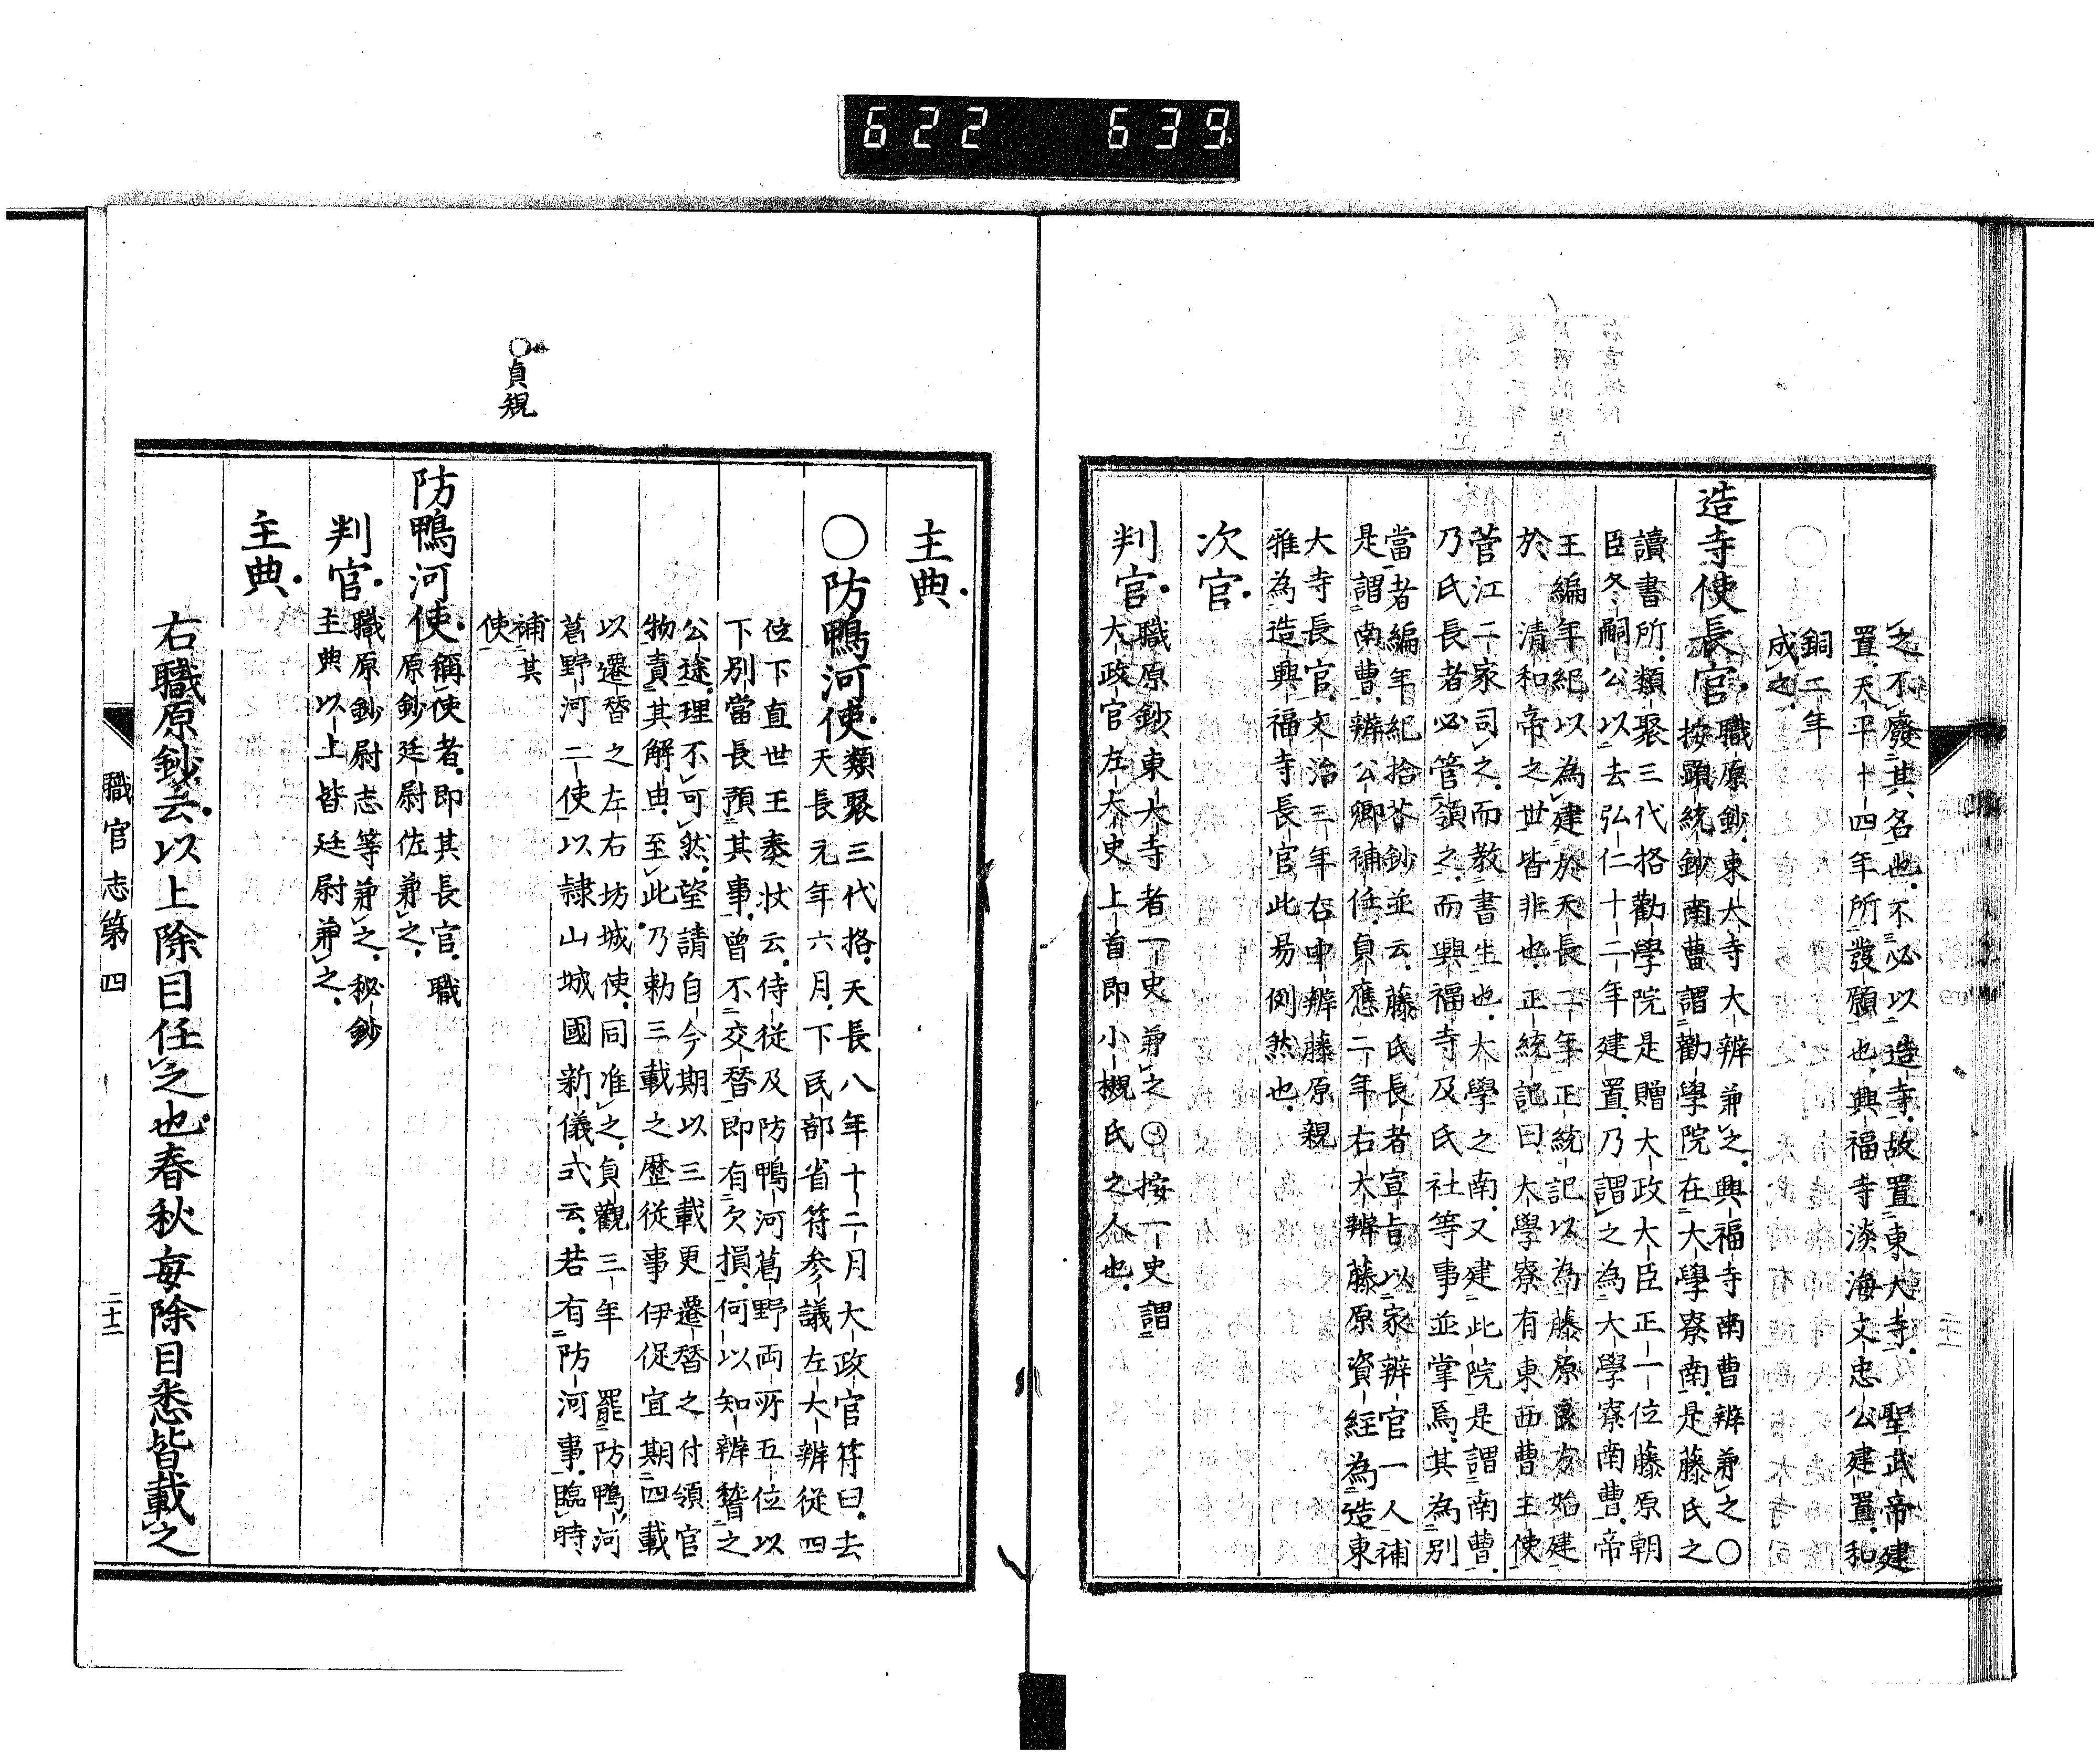 622 639
之不廢其名也不必以造寺故置東大寺聖武帝建
置天平十四年所發願也興福寺淡海文忠公建置和
銅二年
成之
造寺使長官職原鈔東大寺大辨兼之興福寺南曹辨兼之〇
按顕統鈔南曹謂勸學院在大學寮南是藤氏之
讀書所類聚三代格勸學院是贈大政大臣正一位藤原朝
臣冬嗣公以去弘仁十二年建置乃謂之為大學寮南曹帝
王編年紀以為建於天長二年正統記以為藤原良房始建
於清和帝之世皆非也正統記曰大學寮有東西曹主使
菅江二家司之而教書生也大學之南又建此院是謂南曹
乃氏長者必管領之而興福寺及氏社等事並掌焉其為別
當者編年紀拾芥鈔並云藤氏長者宣旨以家辨官一人補
是謂南曹辨公卿補任貞應二年右大辨藤原資經為造東
大寺長官文治三年右中辨藤原親
雅為造興福寺長官此易例然也
次官
判官職原鈔東大寺者一史兼之〇按一史謂
大政官左大史上首即小槻氏之人也
主典
〇防鴨河使類聚三代格天長八年十二月大政官符曰去
天長元年六月下民部省符参議左大辨從四
位下直世王奏状云侍從及防鴨河葛野両所五位以
下別當長預其事曾不交替即有欠損何以知辨替之
公途理不可然望請自今期以三載更遷替之付領官
物責其解由至此乃勅三載之歴從事伊促宜期四載
以遷替之左右坊城使同准之貞觀三年罷防鴨河
葛野河二使以隷山城國新儀式云若有防河事臨時
補其
使
〇貞観
防鴨河使稱使者即其長官職
原鈔廷尉佐兼之
判官職原鈔尉志等兼之秘鈔
主典以上皆廷尉兼之
主典
右職原鈔云以上除目任之也春秋毎除目悉皆載之
職官志第四
二十二